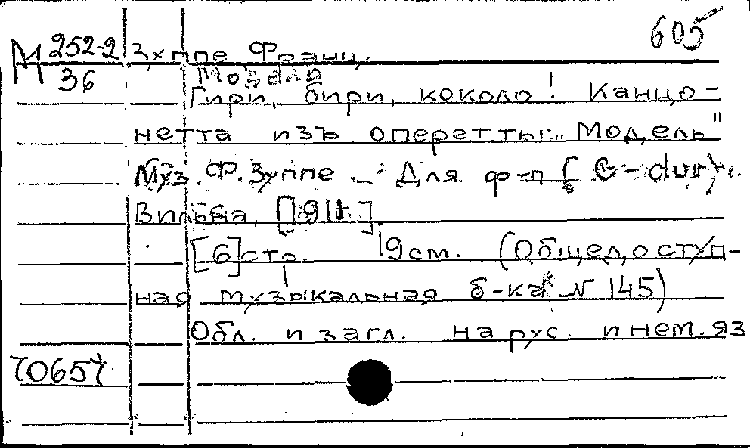 605
М 252-2
36
Зуппе Франц.
Модель
Гири, бири, кокола! Канцо-
нетта изъ оперетты „Модель"
Муз. Ф. Зуппе. – Для ф-п (C-dur).
Вильна, [191].
[6] стр. 19 см. (Общедоступ-
ная музыкальная б-ка N 145)
Обл. и загл. на рус. и нем. яз